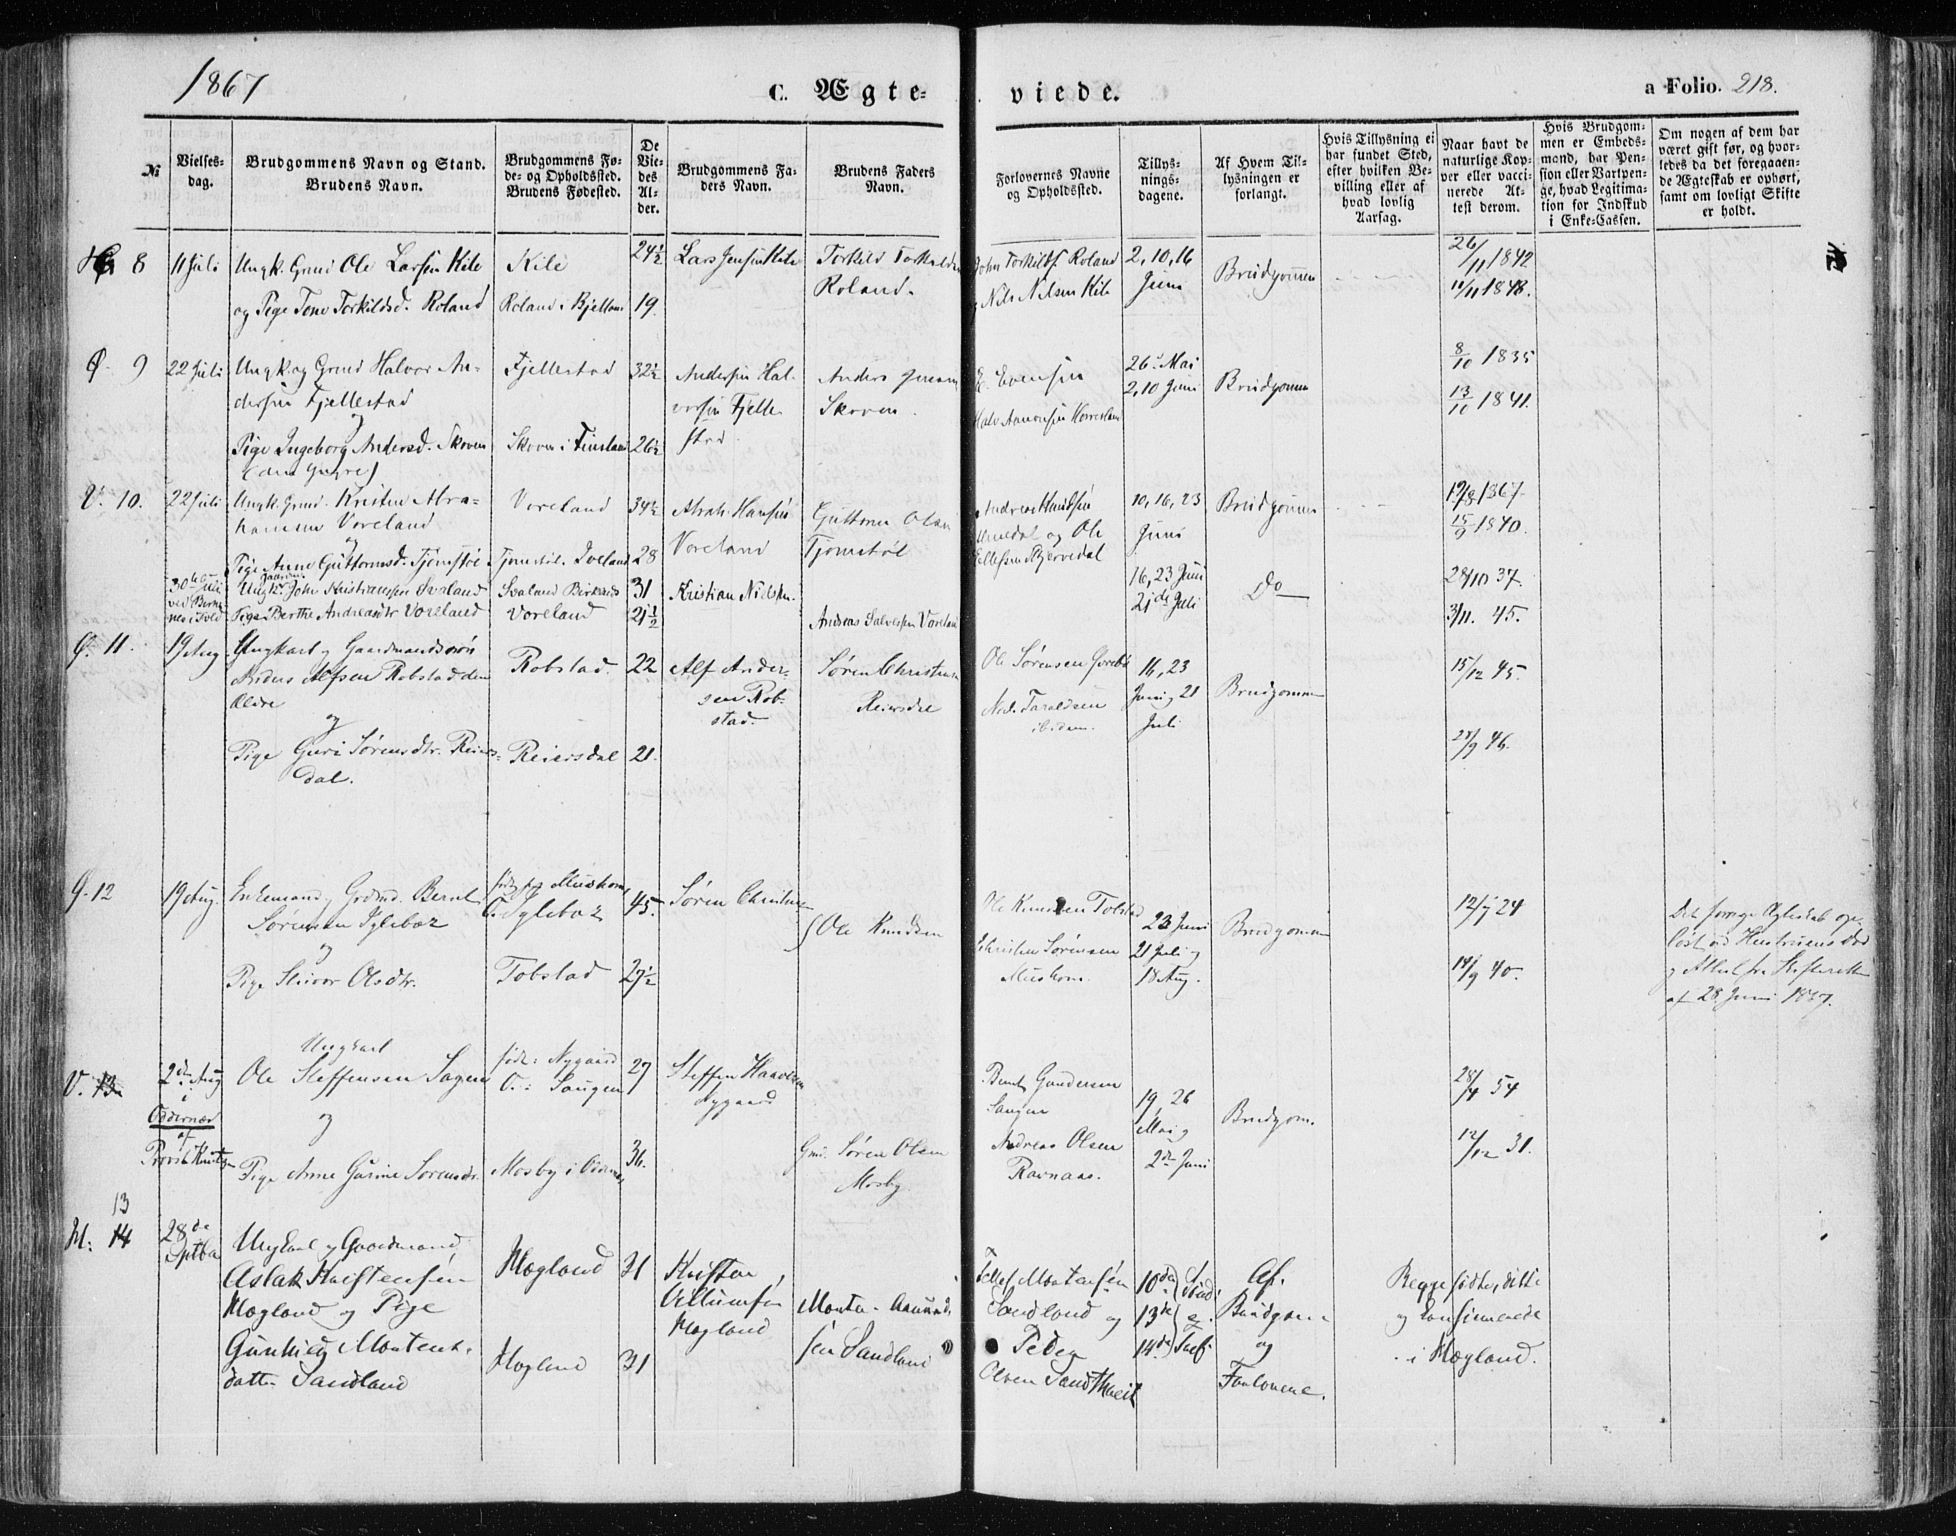 1867
C. Ægte-
viede.
a Folio. 218.
№
Vielses-
dag.
Brudgommens Navn og Stand.
Brudens Navn.
Brudgommens Fø-
de- og Opholdssted.
Brudens Fødested.
De
Vie-
des
Al-
der.
Brudgommens Fa-
ders Navn.
Brudens Faders
Navn.
Forlovernes Navne
og Opholdssted.
Tillys-
nings-
dagene.
Af Hvem Til-
lysningen er
forlangt.
Hvis Tillysning ei
har fundet Sted,
efter hvilken Be-
villing eller af
hvad lovlig
Aarsag.
Naar havt de
naturlige Kop-
per eller vacci-
nerede At-
test derom.
Hvis Brudgom-
men er Embeds-
mand, har Pen-
sion eller Vartpen-
ge, hvad Legitima-
tion for Indskud
i Enke-Cassen.
Om nogen af dem har
været gift før, og hvor-
ledes da det foregaaen-
de Ægteskab er ophørt,
samt om lovligt Skifte
er holdt.
8
11 Juli
Ungk. Grmd Ole Larsen Kile
og Pige Tone Torkildsd. Roland
Kile
Roland i Bjelland
24½
19
Lars Jensen Kile
Torkild Torkildsen
Roland.
John Torkilds. Roland
Nils Nilsen Kile
2, 10, 16
Juni
Brudgommen
26/11 1842
11/11 1848.
9
22 Juli
Ungk. og Grmd Halvor An-
dersen Fjellestad
og
Pige Ingeborg Andersd. Skoven
(den Yngre)
Fjellestad
Skoven i Finsland
32½
26½
Andersen Hal-
vorsen Fjelle-
stad.
Anders Jensen
Skoven.
E. Evensen
26. Mai
2, 10 Juni
Brudgommen
8/10 1835
13/10 1841.
V. 10.
22 Juli
Ungk. Grmd. Kristen Abra-
hamsen Voreland
og
Pige Anne Guttormsd. Tjomstøl
Voreland
Tjomstøl i Iveland
34½
28
Abrah. Hansen
Voreland
Guttorm Olsen
Tjomstøl
Andreas
og Ole
Ellefsen
10, 16, 23
Juni
Brudgommen
19/8 1867.
15/9 1840.
30te Juli
ved
Ungk. John Kristiansen Svaland
Pige Berthe Andreasdtr Voreland
Svaland Birkenes
Voreland
31
21½
Kristian Nielsen.
Andreas Salvesen Voreland
16, 23 Juni
21de Juli
Do
28/10 37.
3/11. 45.
Ø. 11.
19 Aug
Ungkarl og Gaardmandssøn
Anders Alfsen Robstad den
Ældre
og
Pige Guri Sørensdtr. Reiers-
dal.
Robstad.
Reiersdal
22
21.
Alf Ander-
sen Rob-
stad.
Søren Christensen
Reiersdal
Ole Sørensen
Taraldsen
ibidem.
16, 23
Juni og 21
Juli
Brudgommen
15/12 45.
28/9 46.
Ø. 12
19 Aug.
Enkemand og Grdmd. Bernt
Sørensen Iglebæk
og
Pige Siuor Olsdtr.
Iglebæk
Tobstad
45.
27½
Søren Christensen
Ole Knudsen
Ole Knudsen Tobstad
Christen Sørensen
23 Juni
21 Juli og
18 Aug.
Brudgommen
12/7 24
14/9 40.
Det forrige Ægteskab op-
løst ved Hustruens Død
og Attest fra Skifteretten
af 28 Juni 1867.
V. 13
2den Aug
i
Oddernæs
af
Ungkarl
Ole Steffensen Saugen
og
Pige Anne Gurine Sørensdtr.
født: Nygaard
O.: Saugen
Mosby i Oddernæs
27
36.
Steffen
Nygaard
Grmd. Søren Olsen
Mosby.
Bernt Gundersen
Saugen
Andreas Olsen
Ravnaas.
19, 26
Mai og
2den Juni
Brudgom.
28/4 54
12/12 31.
13
M: 14
28de
Septbr
Ungkarl og Gaardmand
Aslak Kristensen
Mogland og Pige
Gunhild Montens-
datter Sandland
Mogland
Mogland
31
31
Kristen
Mogland
Monten Aanund-
sen Sandland
Tellef Montensen
Sandland og
Peder
Olsen
10de
13de
14de
Af.
Brudgom-
og
Forloverne.
Begge fødte, ditto
og Confirmerede
i Mogland.